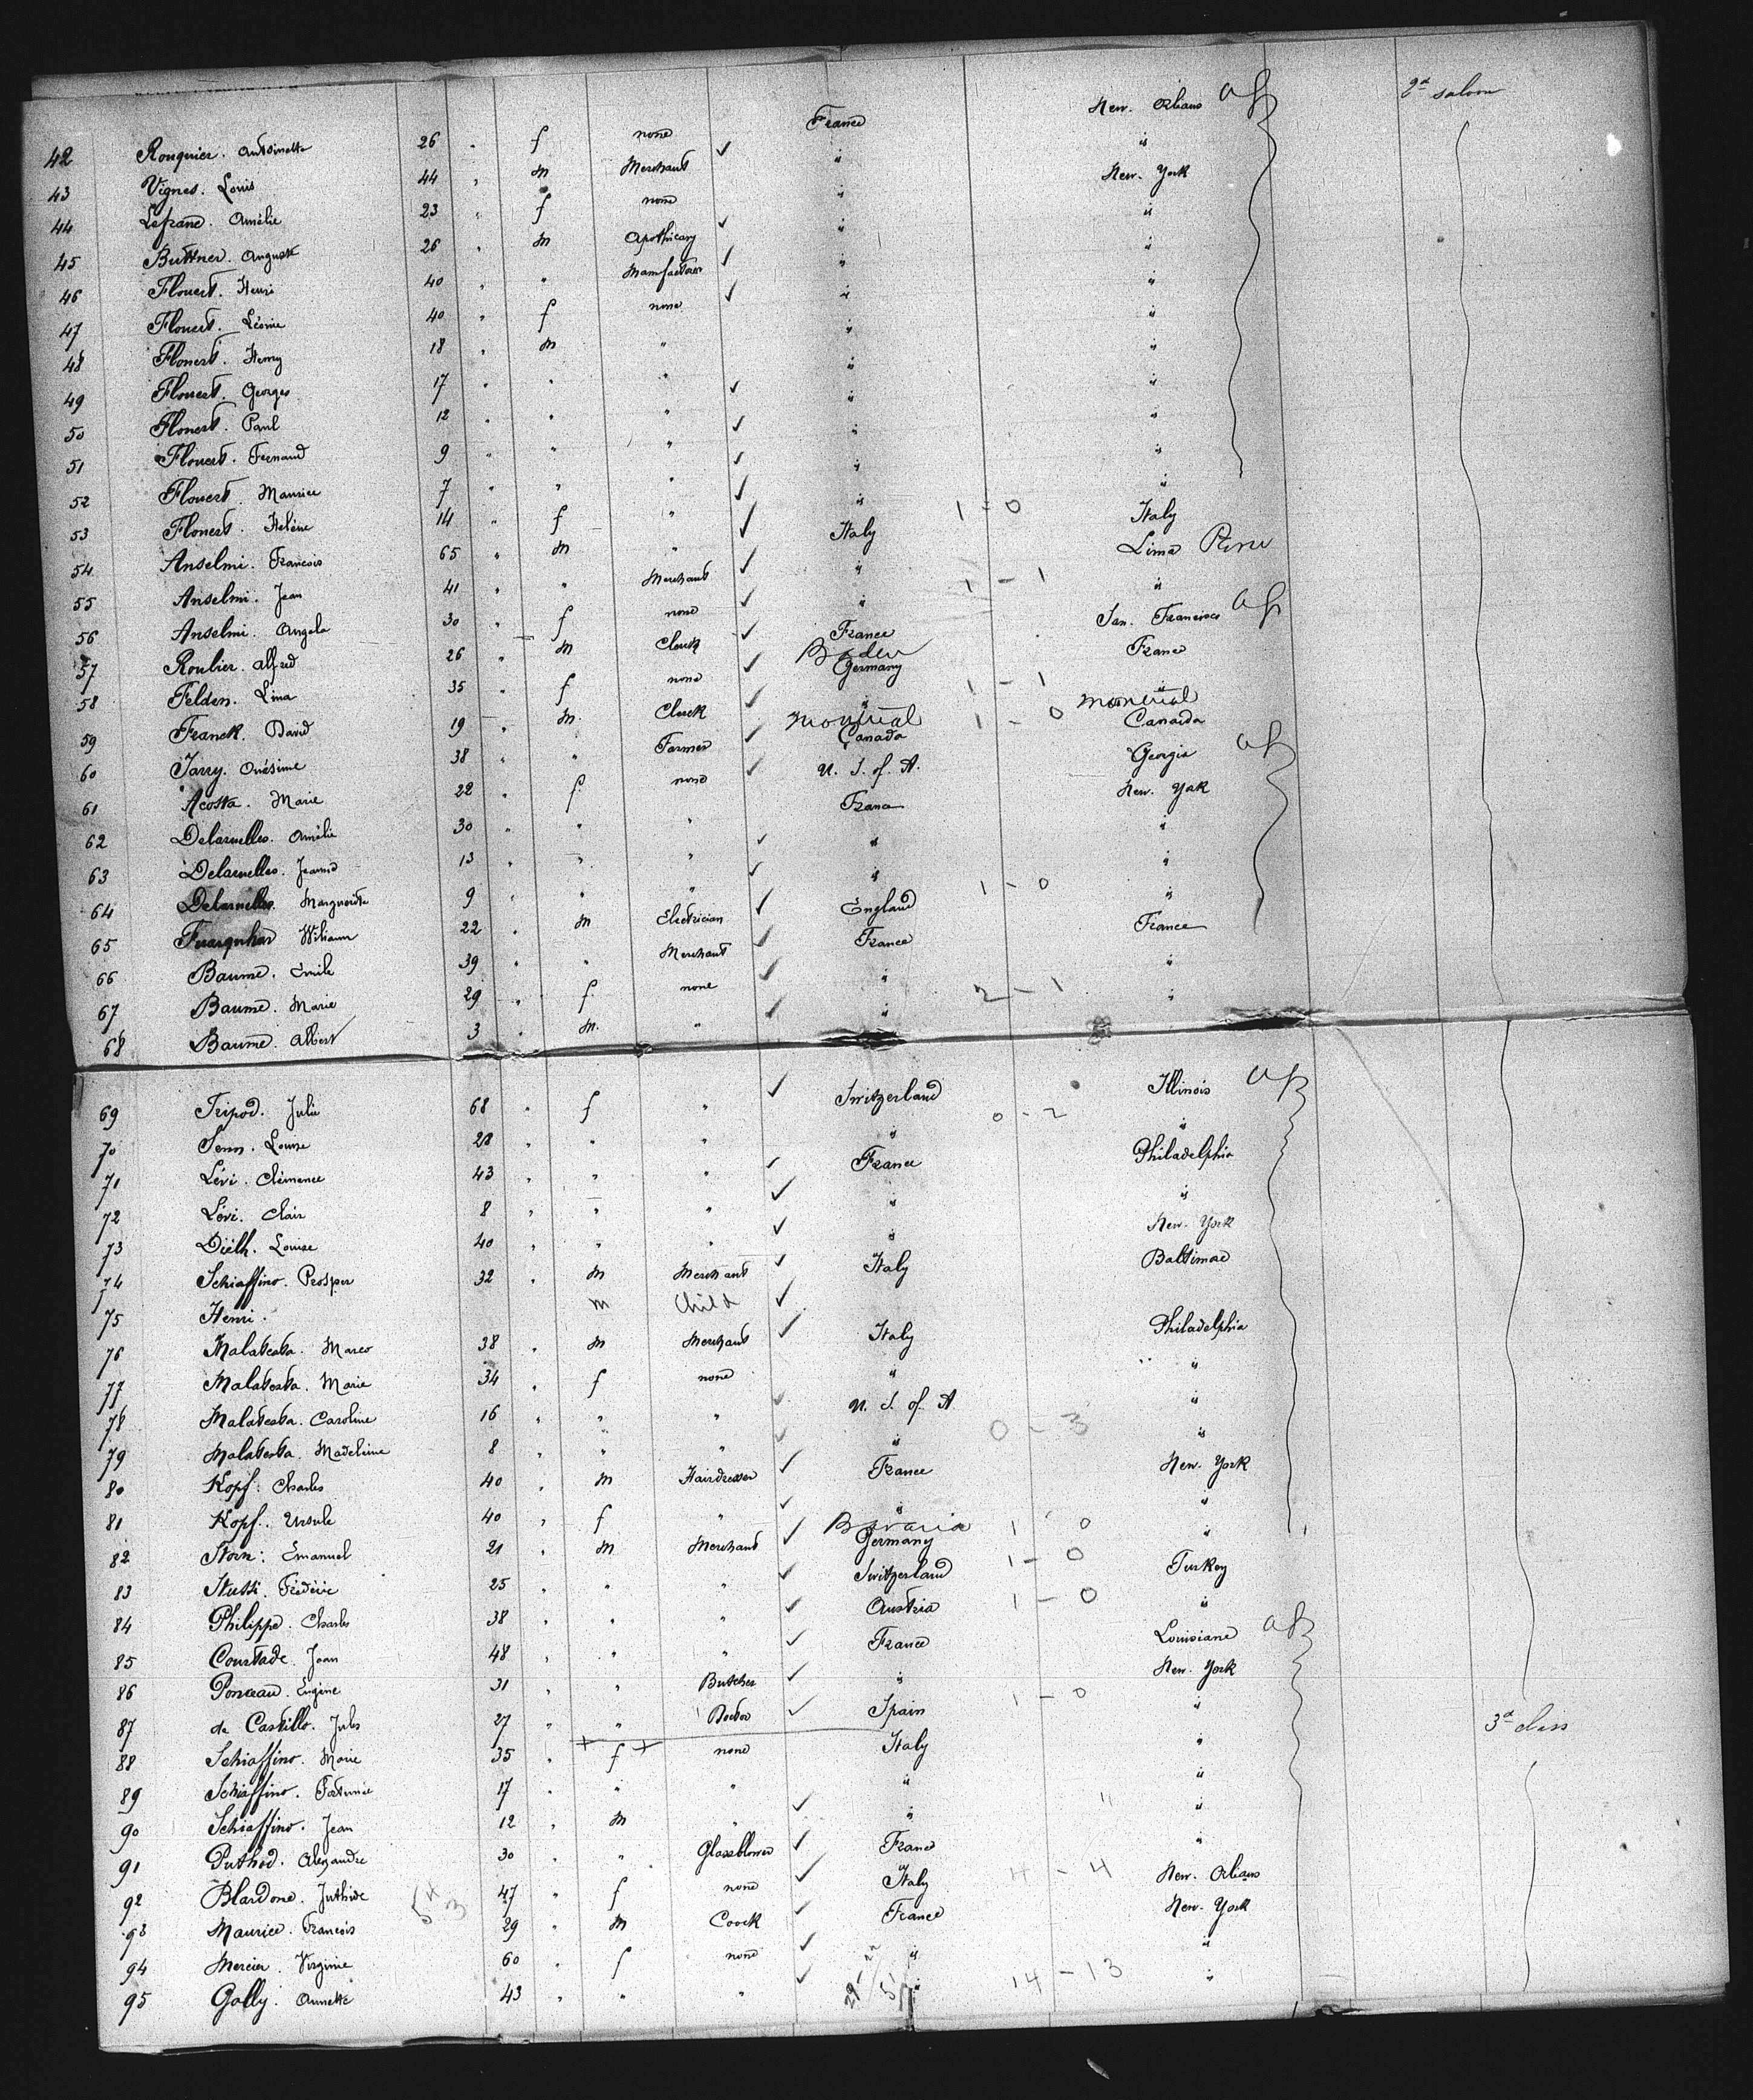 2d saloon
42 Rouquier. Antoinette 26 " f none France New. Orleans
43 Vignes. Louis 44 " m Merchant " "
44 Lefranc. Amélie 23 " f none " New. York
45 Buttner. Auguste 26 " m Apothicary " "
46 Flouest. Henri 40 " " Manfacturer " "
47 Flouest. Léonie 40 " f none " "
48 Flouest. Henry 18 " m " " "
49 Flouest. Georges 17 " " " " "
50 Flouest. Paul 12 " " " " "
51 Flouest. Fernand 9 " " " " "
52 Flouest. Maurice 7 " " " " "
53 Flouest. Helène 14 " f " " " 1 - 0
54 Anselmi. Francois 65 " m " Italy Italy
55 Anselmi. Jean 41 " " Merchant " Lima Peru 1 - 1
56 Anselmi. Angela 30 " f none " "
57 Roulier. Alfred 26 " m Clerk France San. Francisco
58 Felden. Lina 35 " f none Baden Germany France 1 - 1
59 Franck. David 19 " m. Clerck " " 1 - 0
60 Jarry. Onésime 38 " " Farmer Montreal Canada Montreal Canada
61 Acosta. Marie 22 " f none U. S. of. A. Georgia
62 Delaruelles. Amélie 30 " " " France New. York
63 Delaruelles. Jeanne 13 " " " " "
64 Delaruelles. Marguerite 9 " " " " " 1 - 0
65 Fuarquhar William 22 " m Electrician England "
66 Baume. Emile 39 " " Merchant France France
67 Baume. Marie 29 " f none " " 2 - 1
68 Baume. Albert 3 " m. " " "
69 Tripod. Julie 68 " f " Switzerland Illinois 0 - 2
70 Senn. Louise 28 " " " " "
71 Lévi. Clémence 43 " " " France Philadelphia
72 Lévi. Clair 8 " " " " "
73 Diélh. Louise 40 " " " " New. York
74 Schiaffino. Prosper 32 " m Merchant Italy Baltimore
75 Henri. m Child
76 Malatesta. Marco 38 " m Merchant Italy Philadelphia
77 Malatesta. Marie 34 " f none " "
78 Malatesta. Caroline 16 " " " U. S. of A "
79 Malatesta. Madeleine 8 " " " " " 0 - 3
80 Kopf. Charles 40 " m Hairdresser France New. York
81 Kopf. Ursule 40 " f " " "
82 Stern. Emanuel 21 " m Merchant Bavaria Germany " 1 - 0
83 Stussi. Frédéric 25 " " " Switzerland Turkey 1 - 0
84 Philippe. Charles 38 " " " Austria " 1 - 0
85 Courtade. Jean 48 " " " France Louisiane
86 Ponceau. Eugène 31 " " Butcher " New. York
87 de Castillo. Jules 27 " " Doctor Spain " 1 - 0
3d class
88 Schiaffino. Marie 35 " f none Italy "
89 Schiaffino. Fortunée 17 " " " " "
90 Schiaffino. Jean 12 " m " " "
91 Puthod. Alexandre 30 " " Glassblower France "
92 Blardone. 47 " f none Italy New. Orleans 4 - 4
93 Maurice. Francois 29 " m Coock France New. York
94 Mercier. Virginie 60 " f none " "
95 Golly. Annette 43 " " " " " 14 - 13